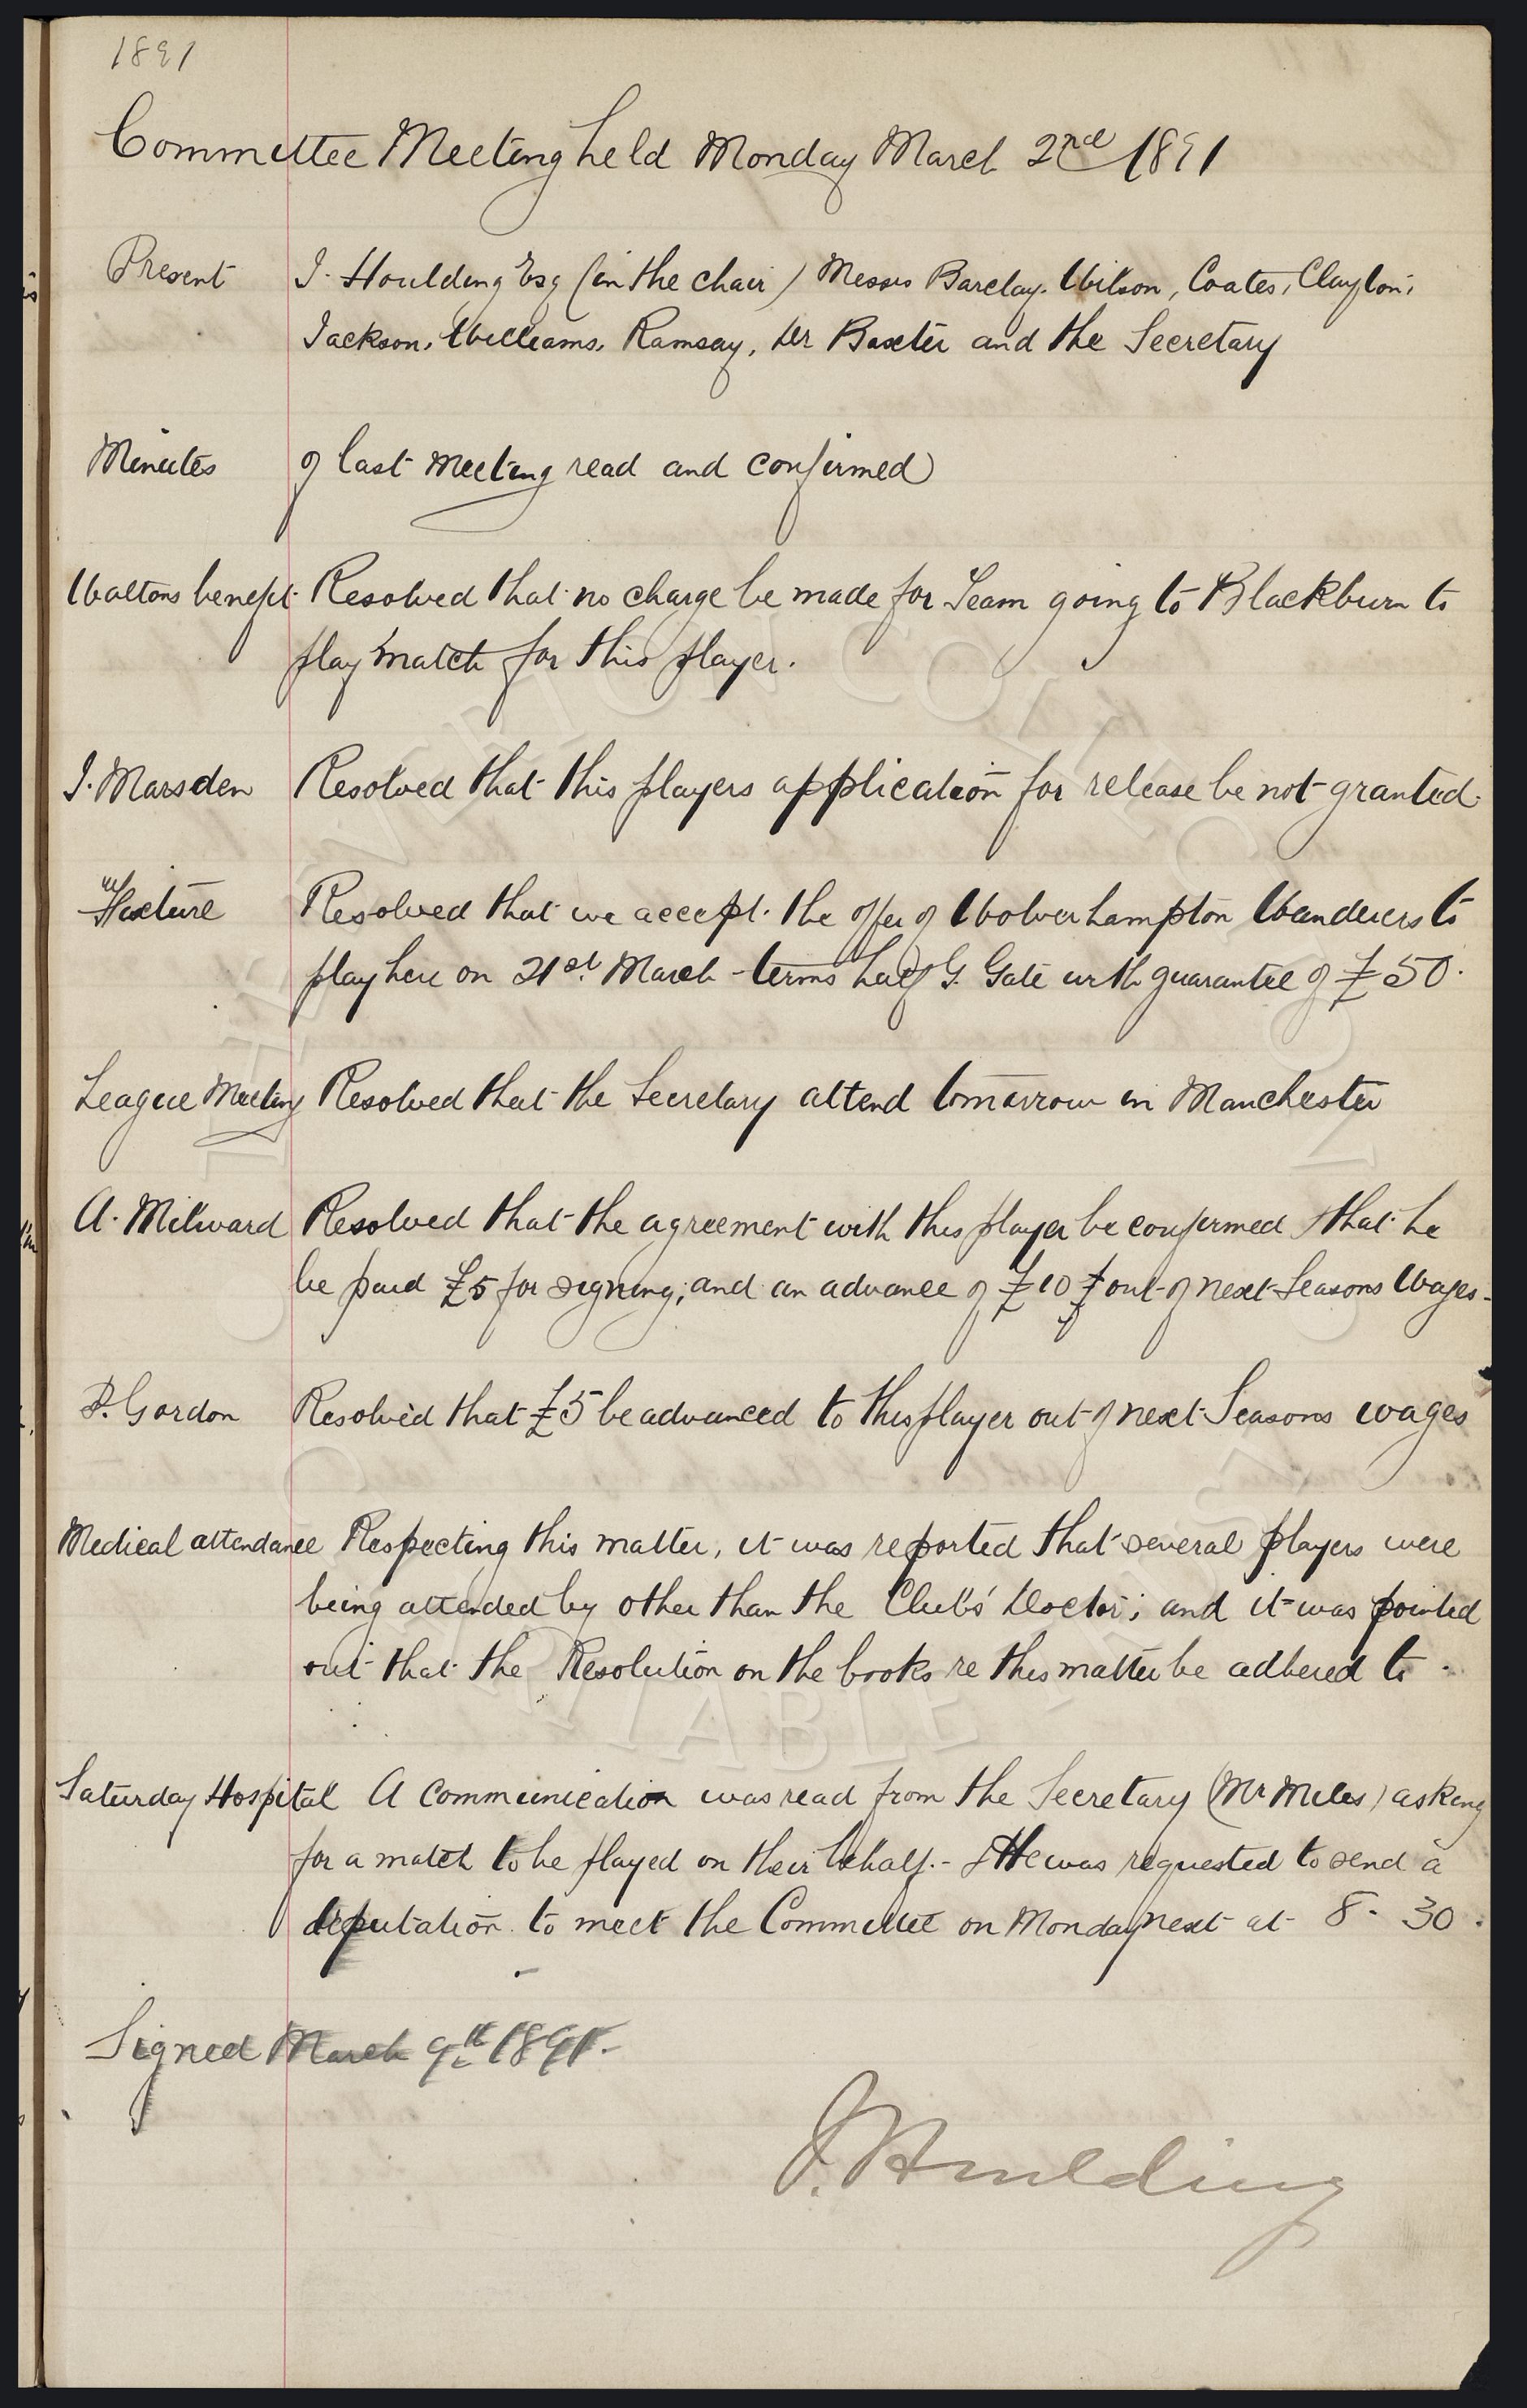 1891
Committee Meeting held Monday March 2nd 1891
Present J. Houlding Esq (in the chair) Messrs Barclay. Wilson, Coates, Clayton,
Jackson, Williams, Ramsay, Dr Baxter and the Secretary
Minutes of last meeting read and confirmed
Waltons benefit Resolved that no charge be made for Team going to Blackburn to
play match for this player.
J. Marsden Resolved that this players application for release be not granted.
Fixture Resolved that we accept the offer of Wolverhampton Wanderers to
play here on 21st March - terms half G. Gate with guarantee of £50.
League Meeting Resolved that the Secretary attend tomorrow in Manchester
A. Milward Resolved that the agreement with this player be confirmed & that he
be paid £5 for signing; and an advance of £10 out of next Seasons Wages.
P. Gordon Resolved that £5 be advanced to this player out of next Seasons wages
Medical attendance Respecting this matter, it was reported that several players were
being attended by other than the Club's Doctor; and it was pointed
out that the Resolution on the books re this matter be adhered to.
Saturday Hospital A communication was read from the Secretary (Mr Miles) asking
for a match to be played on their behalf. - & He was requested to send a
deputation to meet the Committee on Monday next at 8.30.
Signed March 9th 1891.
J. Houlding
EVERTON COLLECTION
CHARITABLE TRUST